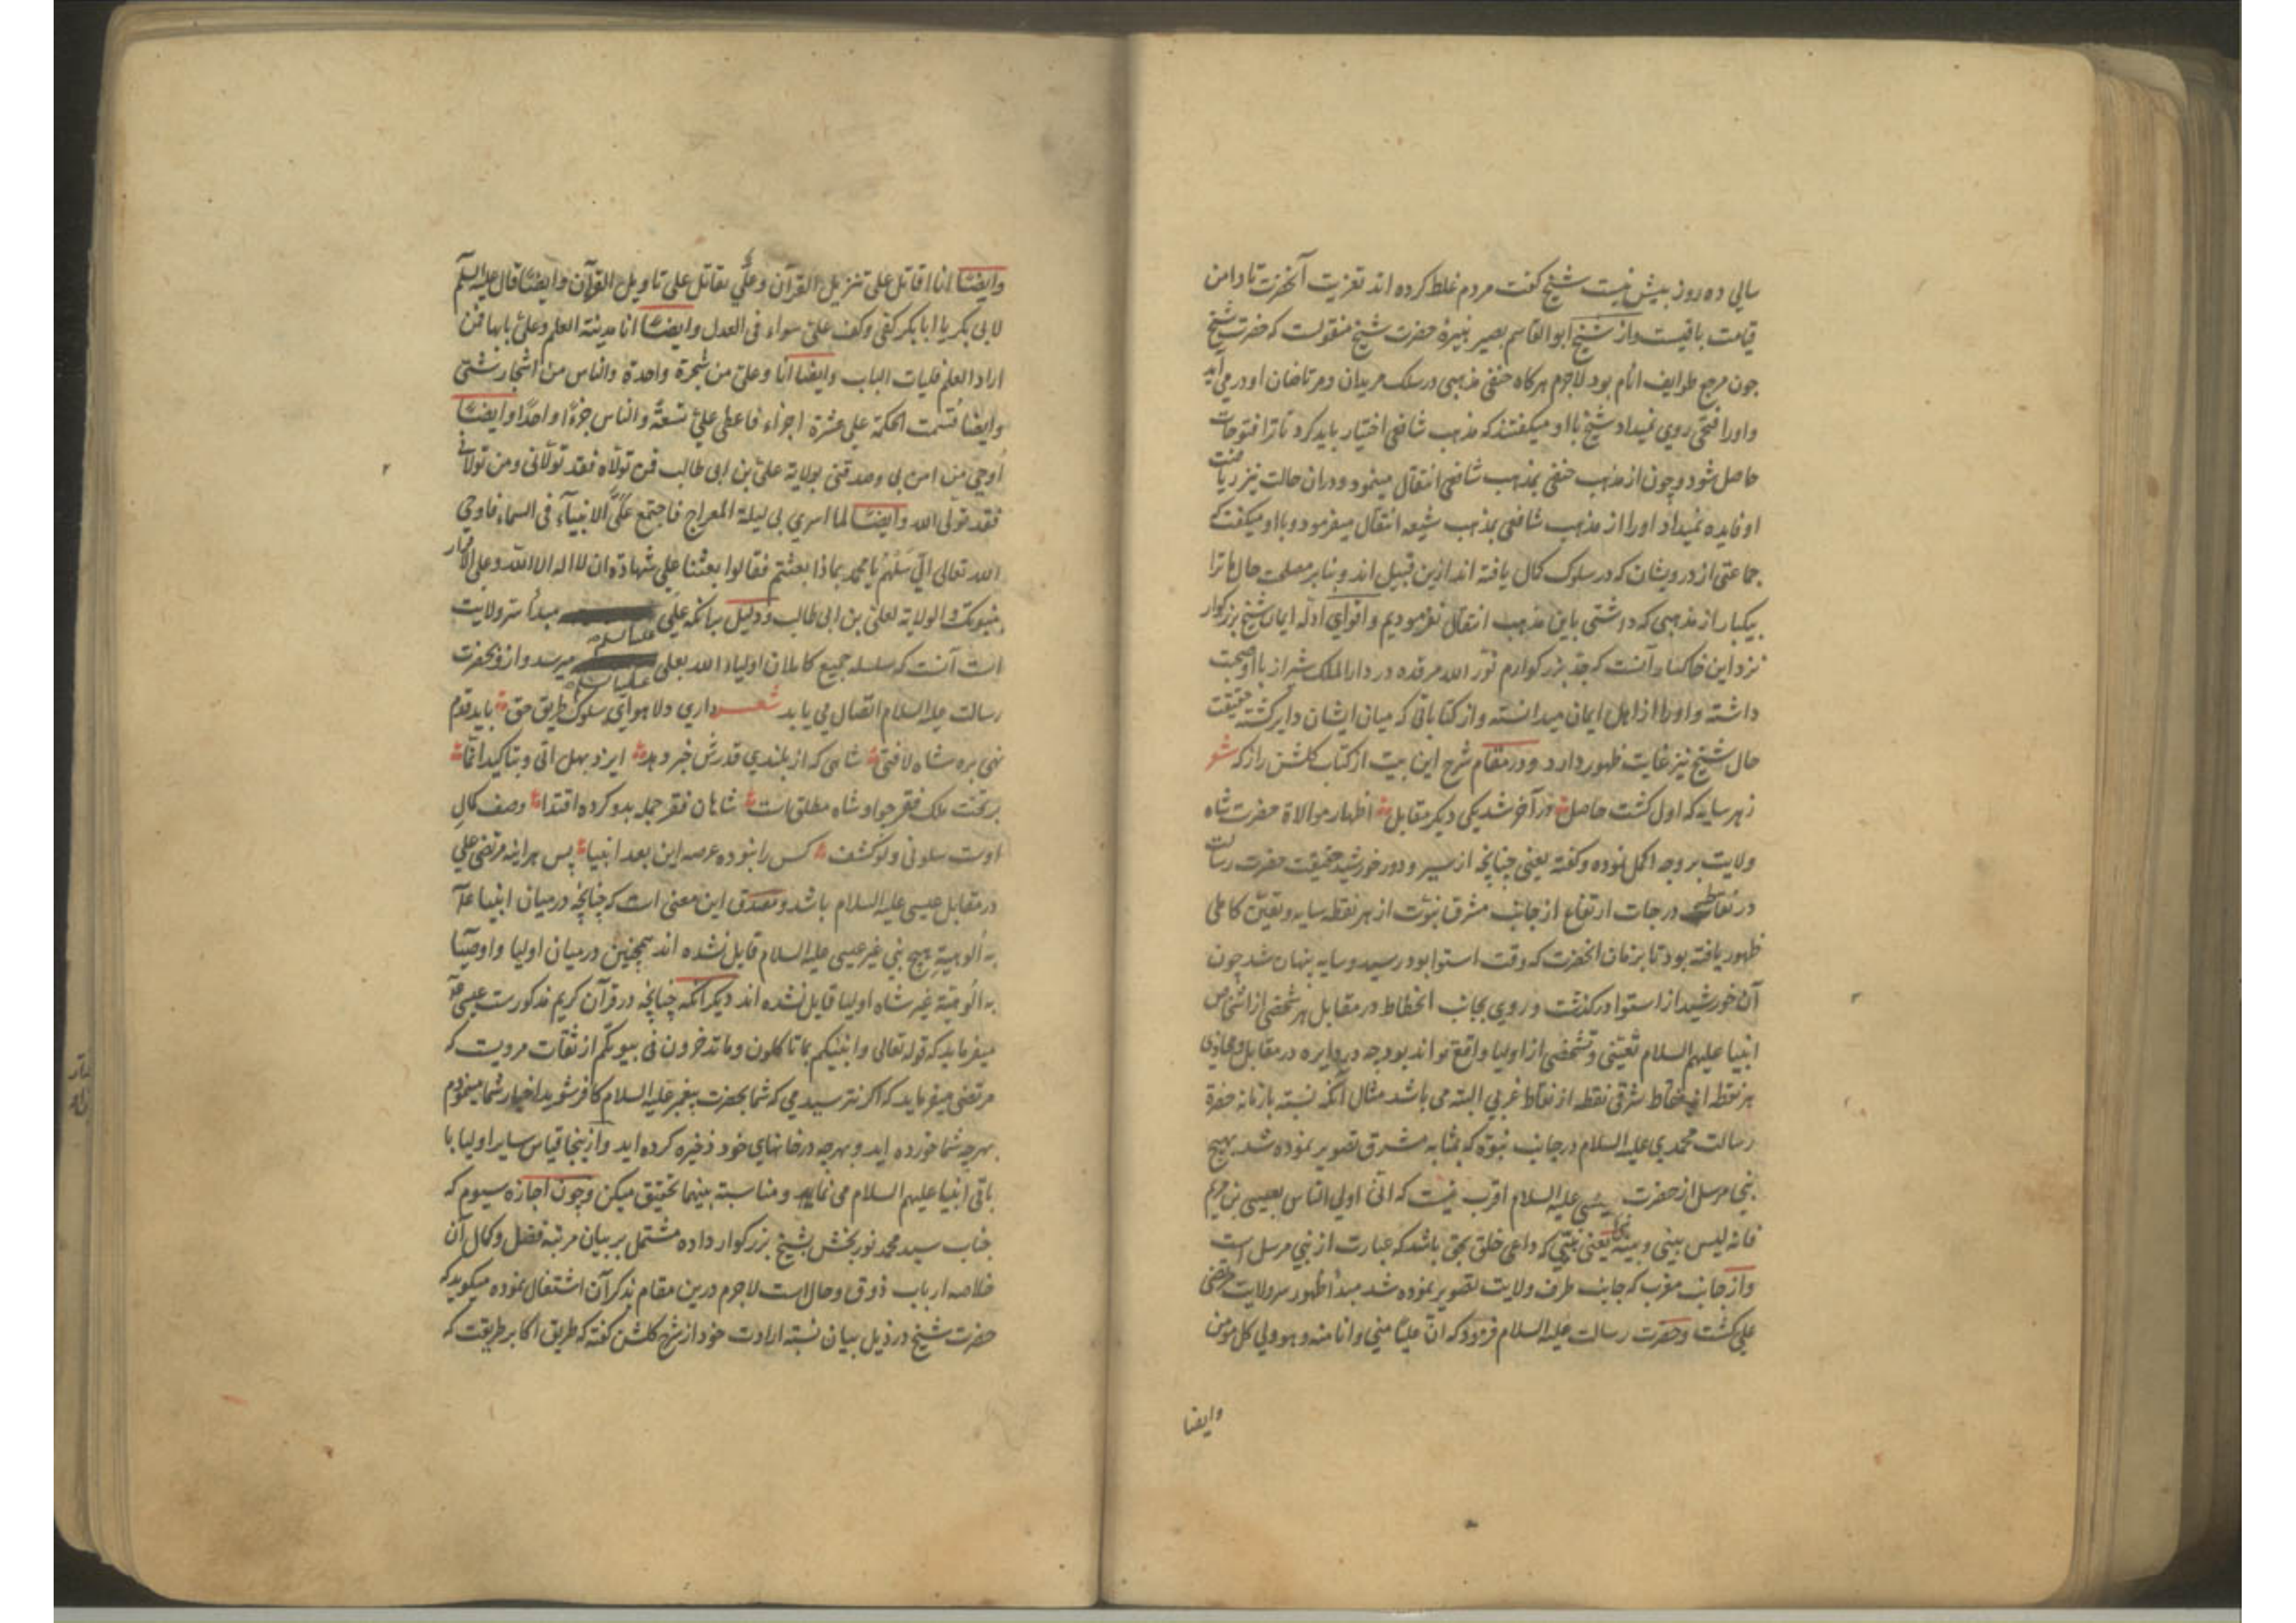 سالی ده روز بیش نیست شیخ گفت مردم غلط کرده اند تعزیت آنحضرت تا دامن
قیامت باقیست و از شیخ ابوالقاسم بصیر نبیرهٔ حضرت شیخ منقولست که حضرت شیخ
چون مرجع طوایف انام بود لاجرم هرگاه حنفی مذهبی در سلک مریدان و مرتاضان او در می آید
و او را فتحی روی نمیداد شیخ با او میگفتند که مذهب شافعی اختیار باید کرد تا ترا فتوحات
حاصل شود و چون از مذهب حنفی بمذهب شافعی انتقال مینمود و در ان حالت نیز ریاضت
او فایده نمیداد او را از مذهب شافعی بمذهب شیعه انتقال میفرمود و با او میگفت که
جماعتی از درویشان که در سلوک کمال یافته اند ازین قبیل اند و بنا بر مصلحت حال ها ترا
بیکبار از مذهبی که داشتی باین مذهب انتقال نفرمودیم و اقوای ادله ایمان شیخ بزرگوار
نزد این خاکسار آنست که جد بزرگوارم نور الله مرقده در دار الملک شیراز با او صحبت
داشته و او را از اهل ایمان میدانسته و از کتاباتی که میان ایشان دایر گشته حقیقت
حال شیخ نیز غایت ظهور دارد و در مقام شرح این بیت از کتاب گلشن راز که شعر
ز هر سایه که اول گشت حاصل در آخر شد یکی دیگر مقابل اظهار موالاة حضرت شاه
ولایت بر وجه اکمل نموده و گفته یعنی چنانچه از سیر و دور خورشید حقیقت حضرت رسالت
در نقاط درجات ارتفاع از جانب مشرق نبوت از هر نقطه سایه و تعین کاملی
ظهور یافته بود تا بزمان انحضرت که وقت استوا بود رسید و سایه پنهان شد چون
آن خورشید از استوا درگذشت و روی بجانب انحطاط در مقابل هر شخصی از اشخاص
انبیا علیهم السلام تعینی و تشخصی از اولیا واقع تواند بود چه در دایره در مقابل و محاذی
هر نقطه از نقاط شرقی نقطه از نقاط غربی البته می باشد مثال آنکه نسبته بازمانه حضرة
رسالت محمدی علیه السلام در جانب نبوة که بمثابه مشرق تصویر نموده شد هیچ
نبی مرسل از حضرت عیسی علیه السلام اقرب نیست که انی اولی الناس بعیسی بن مریم
فانه لیس بینی و بینه نبی یعنی نبیی که داعی خلق بحق باشد که عبارت از نبی مرسل است
و از جانب مغرب که جانب طرف ولایت تصویر نموده شد مبدأ ظهور سر ولایت مرتضی
علی گشت و حضرت رسالت علیه السلام فرمود که ان علیا منی و انا منه و هو ولی کل مؤمن
وایضا
وایضا انا اقاتل علی تنزیل القرآن و علی یقاتل علی تاویل القرآن و ایضا قال علیه السلم
لابی بکر یا ابا بکر کفی و کف علی سواء فی العدل و ایضا انا مدینة العلم و علی بابها فمن
اراد العلم فلیات الباب و ایضا انا و علی من شجرة واحدة و الناس من اشجار شتی
و ایضا قسمت الحکمة علی عشرة اجزاء فاعطی علی تسعة و الناس جزءا واحدا و ایضا
اوحی من امن بی و صدقنی بولایة علی بن ابی طالب فمن تولاه فقد تولانی و من تولانی
فقد تولی الله و ایضا لما اسری بی لیلة المعراج فاجتمع علی الانبیاء فی السماء فاوحی
الله تعالی الی سلهم یا محمد بماذا بعثتم فقالوا بعثنا علی شهادة ان لا اله الا الله و علی الاقرار
بنبوتک و الولایة لعلی بن ابی طالب و دلیل بر آنکه علی علیه السلام مبدأ سر ولایت
است آنست که سلسله جمیع کاملان اولیاء الله بعلی علیه السلام میرسد و از و بحضرت
رسالت علیه السلام اتصال می یابد شعر داری دلا هوای سلوک طریق حق باید قدم
نهی بره شاه لافتی شاهی که از بلندی قدرش خبر دهد ایزد بهل اتی و بتاکید انما
بر تخت ملک فقر چو او شاه مطلق است شاهان فقر جمله بدو کرده اقتدا وصف کمال
اوست سلونی و لو کشف کس را نبوده عرصه این بعد انبیا پس هر اینه مرتضی علی
در مقابل عیسی علیه السلام باشد و مصدق این معنی است که چنانچه در میان انبیا
به الوهیة هیچ نبی غیر عیسی علیه السلام قایل نشده اند همچنین در میان اولیا و اوصیا
به الوهیة غیر شاه اولیا قایل نشده اند دیگر آنکه چنانچه در قرآن کریم مذکورست عیسی
میفرماید که قوله تعالی و انبئکم بما تاکلون و ما تدخرون فی بیوتکم از ثقات مرویت که
مرتضی میفرماید که اگر نترسیدمی که شما بحضرت پیغمبر علیه السلام کافر شوید اخبار شما مینمودم
بهرچه شما خورده اید و بهرچه در خانهای خود ذخیره کرده اید و ازینجا قیاس سایر اولیا با
باقی انبیا علیهم السلام می نماید و مناسبته بینهما تحقیق میکن و چون اجازه سیوم که
جناب سید محمد نوربخش بشیخ بزرگوار داده مشتمل بر بیان مرتبه فضل و کمال آن
خلاصه ارباب ذوق و حال است لاجرم درین مقام بذکر آن اشتغال نموده میگوید که
حضرت شیخ در ذیل بیان نسبته ارادت خود از شرح گلشن گفته که طریق اکابر طریقت که